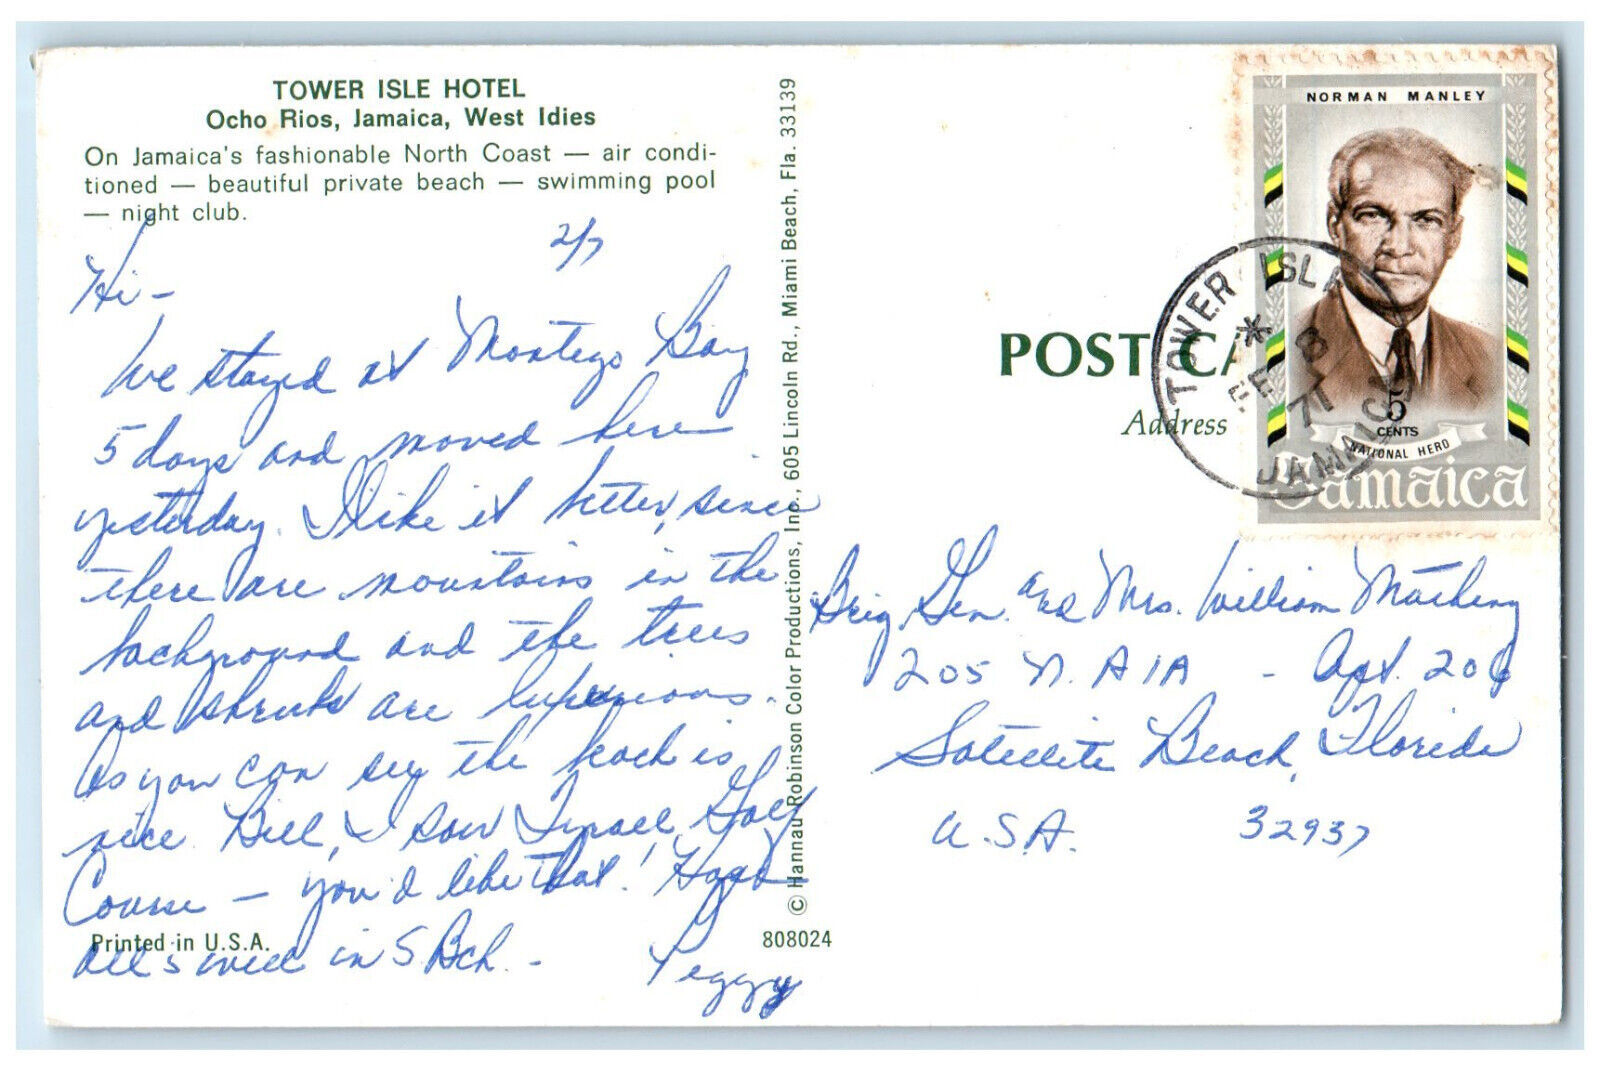 TOWER ISLE HOTEL
Ocho Rios, Jamaica, West Idies
On Jamaica's fashionable North Coast — air condi-
tioned — beautiful private beach — swimming pool
— night club.
2/7
Hi –
We stayed at Montego Bay
5 days and moved here
yesterday. I like it better, since
there are mountains in the
background and the trees
and shrubs are luxurious.
As you can see the beach is
nice. Bill, I saw Tryall Golf
Course – you'd like that! Hope
all's well in S. Bch. –
Peggy
Printed in U.S.A.
808024
© Hannau Robinson Color Productions, Inc., 605 Lincoln Rd., Miami Beach, Fla. 33139
POST CA
Address
NORMAN MANLEY
5
CENTS
NATIONAL HERO
Jamaica
TOWER ISLE
* FE 8
71
JAMAICA
Brig. Gen. and Mrs. William Matheny
205 N. A1A - Apt. 206
Satellite Beach, Florida
U.S.A. 32937